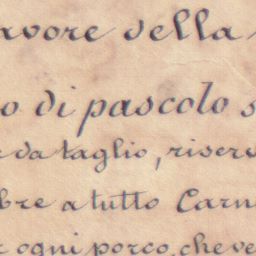 avore della
o di pascolo s
da taglio, riserv
bre a tutto Carn
ogni porco, che ve